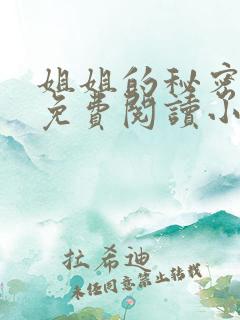 姐姐的秘密
免費閱讀小
拉希迪
未经同意禁止转载